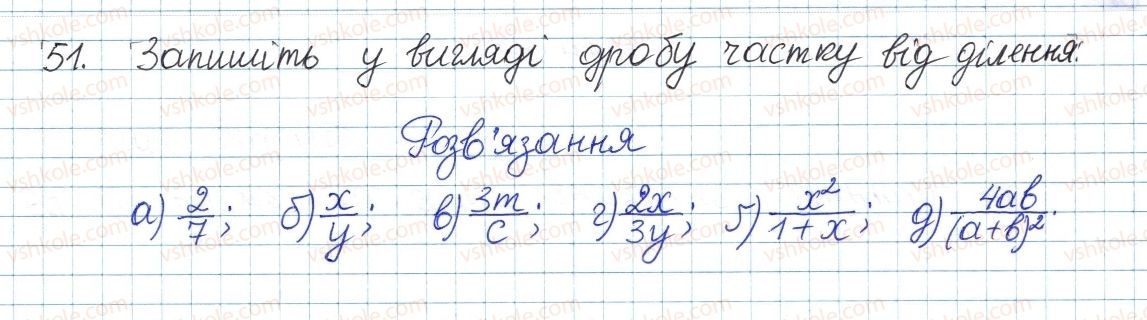 51. Запишіть у вигляді дробу частку від ділення:
Розв'язання
а) 2/7; б) x/y; в) 3m/c; г) 2x/3y; ґ) x²/(1+x); д) 4ab/(a+b)².